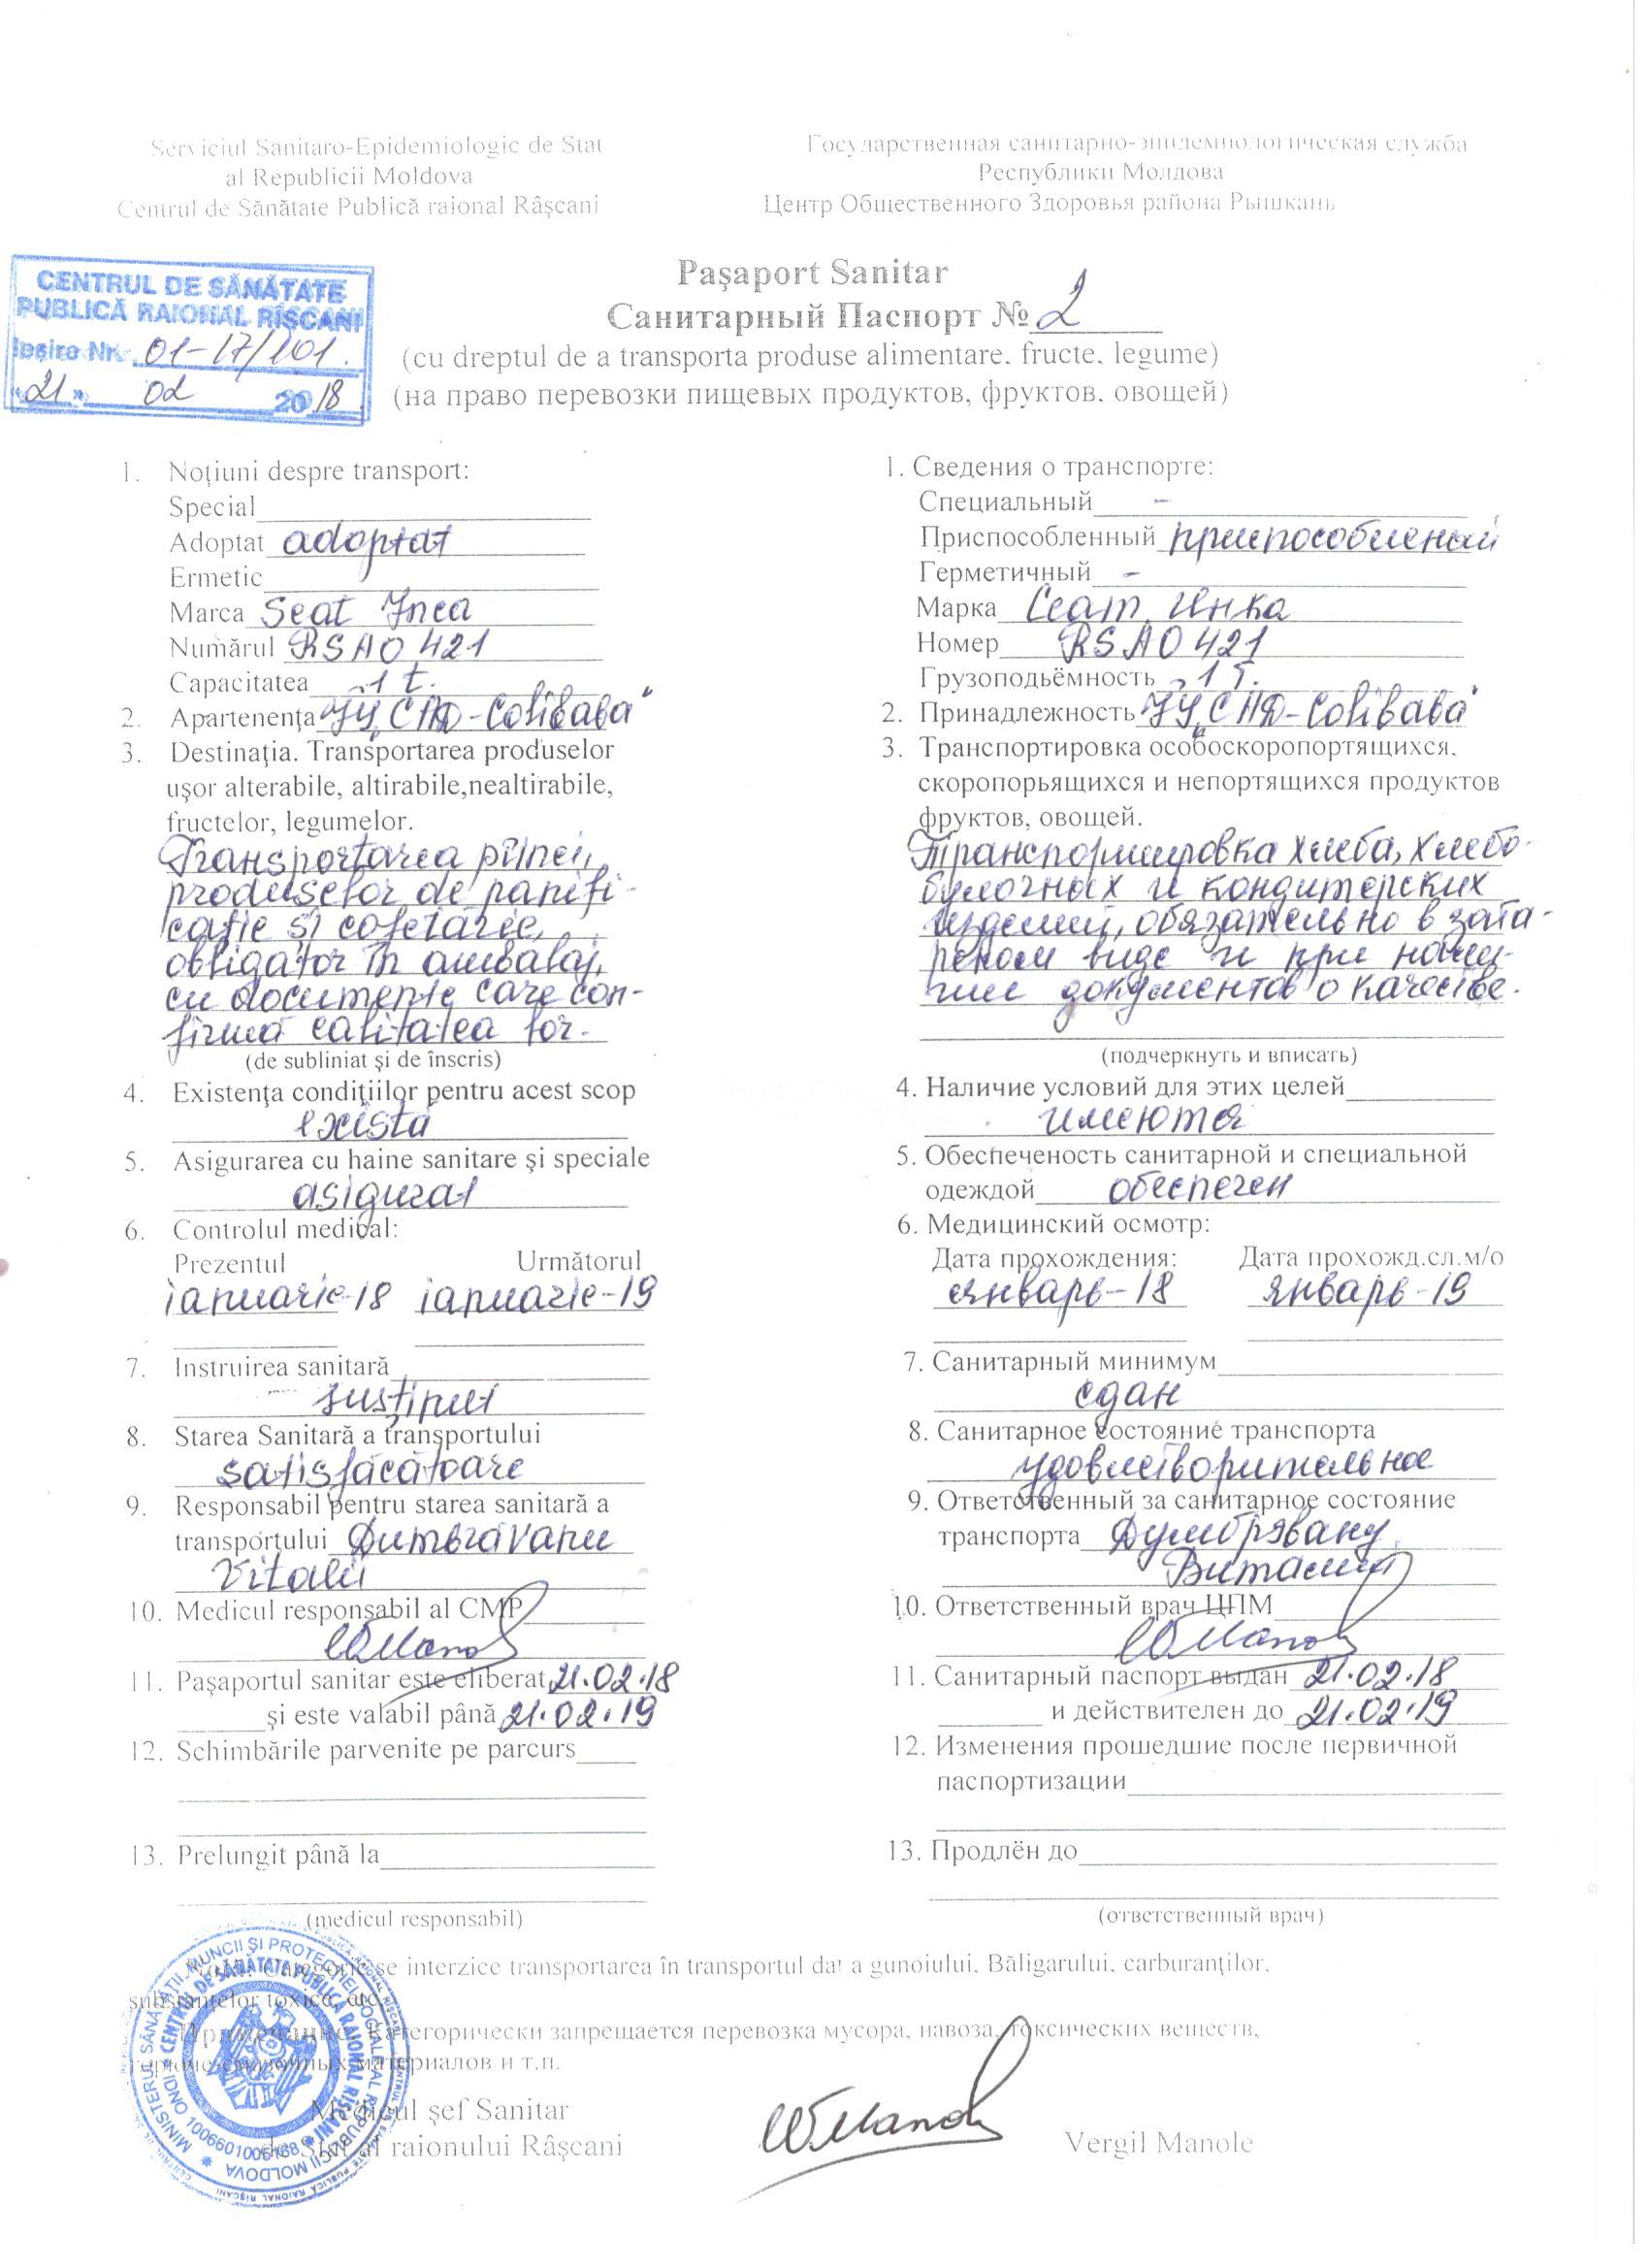 Serviciul Sanitaro-Epidemiologic de Stat
al Republicii Moldova
Centrul de Sănătate Publică raional Râşcani
Государственная санитарно-эпидемиологическая служба
Республики Молдова
Центр Общественного Здоровья района Рышкань
CENTRUL DE SĂNĂTATE
PUBLICĂ RAIONAL RÎŞCANI
Ieşire Nr. 01-17/101.
"21" 02 2018
Paşaport Sanitar
Санитарный Паспорт № 2
(cu dreptul de a transporta produse alimentare, fructe, legume)
(на право перевозки пищевых продуктов, фруктов, овощей)
1. Noţiuni despre transport:
Special
Adoptat adoptat
Ermetic
Marca Seat Inca
Numărul RSAO 421
Capacitatea 1 t.
2. Apartenenţa Colibaba"
3. Destinaţia. Transportarea produselor
uşor alterabile, altirabile,nealtirabile,
fructelor, legumelor.
Transportarea pîinei,
produselor de panifi-
caţie şi cofetărie,
obligator în ambalaj,
cu documente care con-
firmă calitatea lor.
(de subliniat şi de înscris)
4. Existenţa condiţiilor pentru acest scop
există
5. Asigurarea cu haine sanitare şi speciale
asigurat
6. Controlul medical:
Prezentul Următorul
ianuarie-18 ianuarie-19
7. Instruirea sanitară
susţinut
8. Starea Sanitară a transportului
satisfăcătoare
9. Responsabil pentru starea sanitară a
transportului Dumbravanu
Vitalii
10. Medicul responsabil al CMP
11. Paşaportul sanitar este eliberat 21.02.18
şi este valabil până 21.02.19
12. Schimbările parvenite pe parcurs
13. Prelungit până la
(medicul responsabil)
1. Сведения о транспорте:
Специальный -
Приспособленный приспособленый
Герметичный -
Марка Сеат Инка
Номер RSAO 421
Грузоподъёмность 1 т.
2. Принадлежность Colibaba"
3. Транспортировка особоскоропортящихся,
скоропорьящихся и непортящихся продуктов
фруктов, овощей.
Транспортировка хлеба, хлебо-
булочных и кондитерских
изделий, обязательно в зата-
реном виде и при нали-
чии документов о качестве.
(подчеркнуть и вписать)
4. Наличие условий для этих целей
имеются
5. Обеспеченость санитарной и специальной
одеждой обеспечен
6. Медицинский осмотр:
Дата прохождения: Дата прохожд.сл.м/о
январь-18 январь-19
7. Санитарный минимум
сдан
8. Санитарное состояние транспорта
удовлетворительное
9. Ответственный за санитарное состояние
транспорта Думбрэвану
Виталий
10. Ответственный врач ЦПМ
11. Санитарный паспорт выдан 21.02.18
и действителен до 21.02.19
12. Изменения прошедшие после первичной
паспортизации
13. Продлён до
(ответственный врач)
Notă: Categoric se interzice transportarea în transportul dat a gunoiului, Băligarului, carburanţilor,
substanţelor toxice, etc.
Примечание: Категорически запрещается перевозка мусора, навоза, токсических веществ,
горюче-смазочных материалов и т.п.
Medicul şef Sanitar
de Stat al raionului Râşcani
Vergil Manole
MINISTERUL SĂNĂTĂŢII, MUNCII ŞI PROTECŢIEI SOCIALE AL REPUBLICII MOLDOVA
CENTRUL DE SĂNĂTATE PUBLICĂ RAIONAL RÎŞCANI